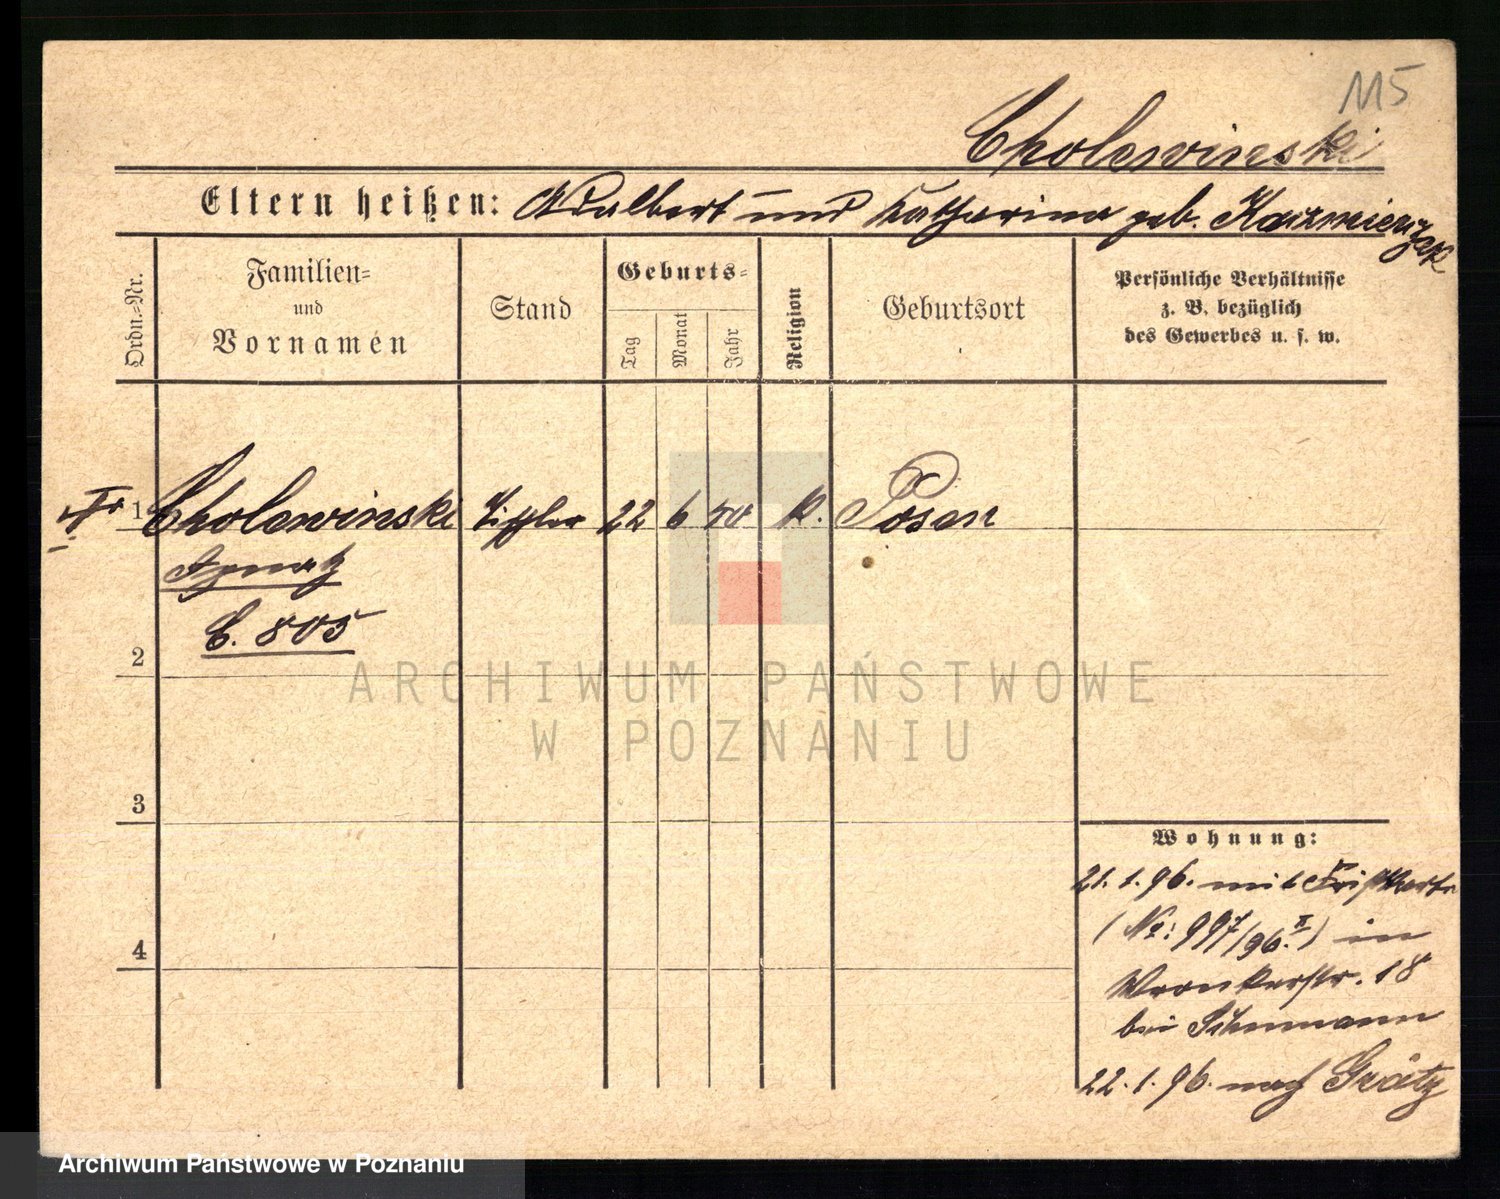 115
Cholewinski
Eltern heißen: Adalbert und Katharina geb. Kazmierczak
Ordn.-Nr.
Familien-
und
Vornamen
Stand
Geburts-
Tag
Monat
Jahr
Religion
Geburtsort
Persönliche Verhältnisse
z. B. bezüglich
des Gewerbes u. s. w.
1 Cholewinski Tischler 22 6 40 k. Posen
Ignatz
C. 805
2
3
4
Wohnung:
21.1.96. mit
(No: 997/96. II) in
Wronkerstr. 18
bei
22.1.96. nach Grätz
ARCHIWUM PAŃSTWOWE
W POZNANIU
Archiwum Państwowe w Poznaniu